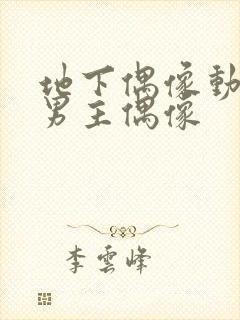 地下偶像動
男主偶像
李雲峰